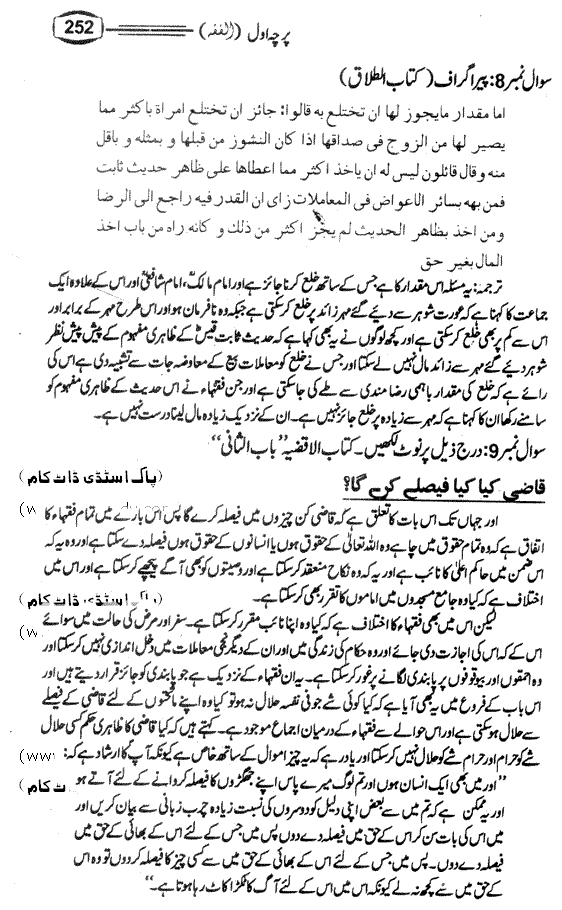 252
پرچہ اول (الفقہ)
سوال نمبر 8: پیراگراف (کتاب الطلاق)
اما مقدار مایجوز لھا ان تختلع بہ قالوا: جائز ان تختلع امراۃ باکثر مما
یصیر لھا من الزوج فی صداقھا اذا کان النشوز من قبلھا و بمثلہ و باقل
منہ و قال قائلون لیس لہ ان یاخذ اکثر مما اعطاھا علی ظاھر حدیث ثابت
فمن بھہ بسائر الاعواض فی المعاملات رای ان القدر فیہ راجع الی الرضا
ومن اخذ بظاھر الحدیث لم یجز اکثر من ذلک و کانہ راہ من باب اخذ
المال بغیر حق
ترجمہ: یہ مسئلہ اس مقدار کا ہے جس کے ساتھ خلع کرنا جائز ہے اور امام مالکؒ، امام شافعیؒ اور اس کے علاوہ ایک
جماعت کا کہنا ہے کہ عورت شوہر سے دیئے گئے مہر زائد پر خلع کر سکتی ہے جبکہ وہ نافرمان ہو اور اس طرح مہر کے برابر اور
اس سے کم پر بھی خلع کر سکتی ہے اور کچھ لوگوں نے یہ بھی کہا ہے کہ حدیث ثابت قیسؓ کے ظاہری مفہوم کے پیش پیش نظر
شوہر دیئے گئے مہر سے زائد مال نہیں لے سکتا اور جس نے خلع کو معاملات بیع کے معاوضہ جات سے تشبیہ دی ہے اس کی
رائے ہے کہ خلع کی مقدار باہمی رضا مندی سے طے کی جا سکتی ہے اور جن فقہاء نے اس حدیث کے ظاہری مفہوم کو
سامنے رکھا ان کا کہنا ہے کہ مہر سے زیادہ پر خلع جائز نہیں ہے۔ ان کے نزدیک زیادہ مال لینا درست نہیں ہے۔
سوال نمبر 9: درج ذیل پر نوٹ لکھیں۔ کتاب الاقضیہ "باب الثانی"
(پاک اسٹڈی ڈاٹ کام)
قاضی کیا کیا فیصلے کرے گا؟
اور جہاں تک اس بات کا تعلق ہے کہ قاضی کن چیزوں میں فیصلہ کرے گا پس اس بارے میں تمام فقہاء کا
اتفاق ہے کہ وہ تمام حقوق میں چاہے وہ اللہ تعالیٰ کے حقوق ہوں یا انسانوں کے حقوق ہوں فیصلہ دے سکتا ہے اور وہ یہ کہ
اس ضمن میں حاکم اعلیٰ کا نائب ہے اور یہ کہ وہ نکاح منعقد کر سکتا ہے اور وصیتوں کو بھی آگے پیچھے کر سکتا ہے اور اس میں
اختلاف ہے کہ کیا وہ جامع مسجدوں میں اماموں کا تقرر بھی کر سکتا ہے۔
(پاک اسٹڈی ڈاٹ کام)
لیکن اس میں بھی فقہاء کا اختلاف ہے کہ کیا وہ اپنا نائب مقرر کر سکتا ہے۔ سفر اور مرض کی حالت میں سوائے
اس کے کہ اس کی اجازت دی جائے اور وہ حکام کی زندگی میں اور ان کے دیگر نجی معاملات میں دخل اندازی نہیں کر سکتا اور
وہ احمقوں اور بیوقوفوں پر پابندی لگانے پر غور کر سکتا ہے۔ یہ ان فقہاء کے نزدیک ہے جو پابندی کو جائز قرار دیتے ہیں اور
اس باب کے فروع میں یہ بھی آیا ہے کہ کیا کوئی شے جو فی نفسہ حلال نہ ہو تو کیا وہ اپنے ماتحتوں کے لئے قاضی کے فیصلے
سے حلال ہو سکتی ہے اور اس حوالے سے فقہاء کے درمیان اجماع موجود ہے۔ کہتے ہیں کہ کیا قاضی کا ظاہری حکم کسی حلال
شے کو حرام اور حرام شے کو حلال نہیں کر سکتا اور یاد رہے کہ یہ چیز اموال کے ساتھ خاص ہے کیونکہ آپؐ کا ارشاد ہے کہ:
"اور میں بھی ایک انسان ہوں اور تم لوگ میرے پاس اپنے جھگڑوں کا فیصلہ کروانے کے لئے آتے ہو
ٹ کام)
اور یہ ممکن ہے کہ تم میں سے بعض اپنی دلیل کو دوسروں کی نسبت زیادہ چرب زبانی سے بیان کریں اور
میں اس کی بات سن کر اس کے حق میں فیصلہ دے دوں پس میں جس کے لئے اس کے بھائی کے حق میں
فیصلہ دے دوں۔ پس میں جس کے لئے اس کے بھائی کے حق میں سے کسی چیز کا فیصلہ کر دوں تو وہ اس
کے حق میں سے کچھ نہ لے کیونکہ اس میں اس کے لئے آگ کا ٹکڑا کاٹ رہا ہوتا ہے۔"